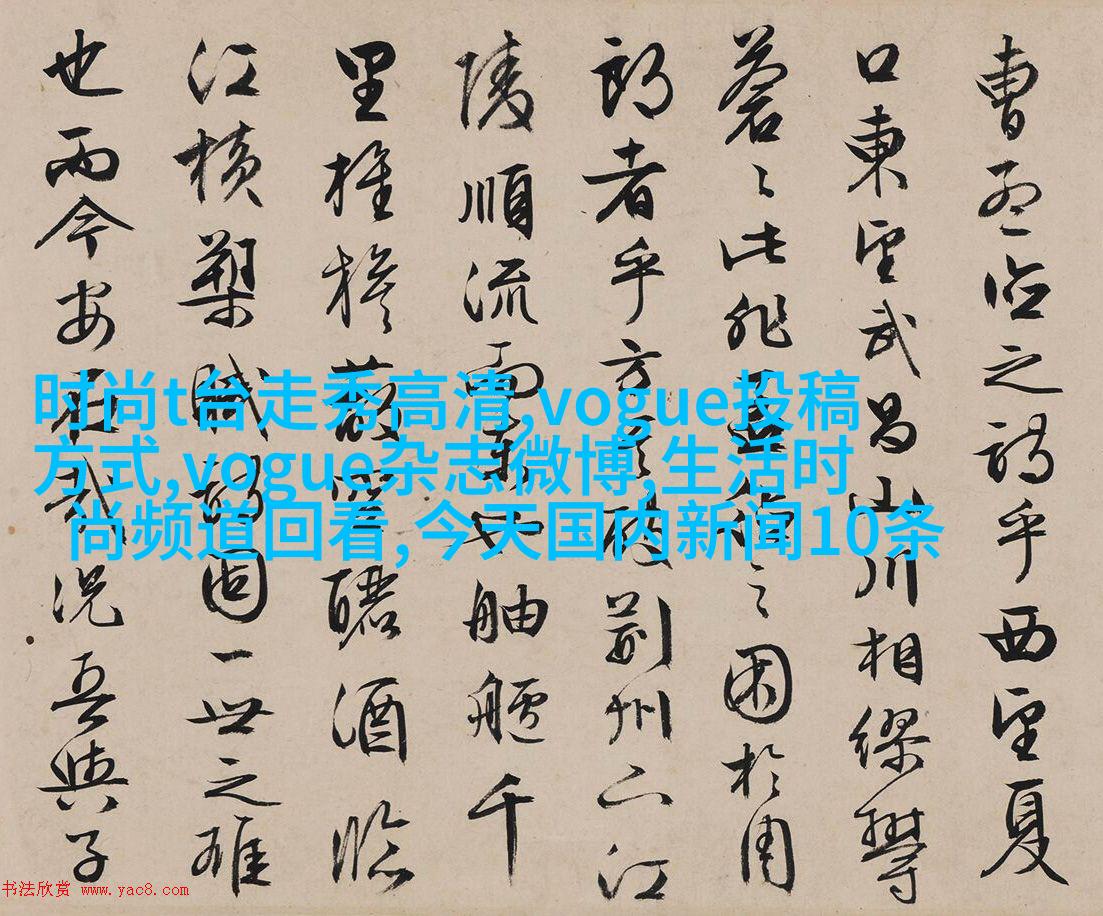 曹孟德之詩乎西望夏
口東望武昌山川相繆鬱
蒼〻此非孟德之困於周
郎者乎方其破荊州下江
陵順流而東也舳艫千
里旌旗蔽空釃酒臨
江橫槊賦詩固一世之雄
也而今安在哉況吾與子
时尚t台走秀高清,vogue投稿
方式,vogue杂志微博,生活时
尚频道回看,今天国内新闻10条
书法欣赏 www.yac8.com